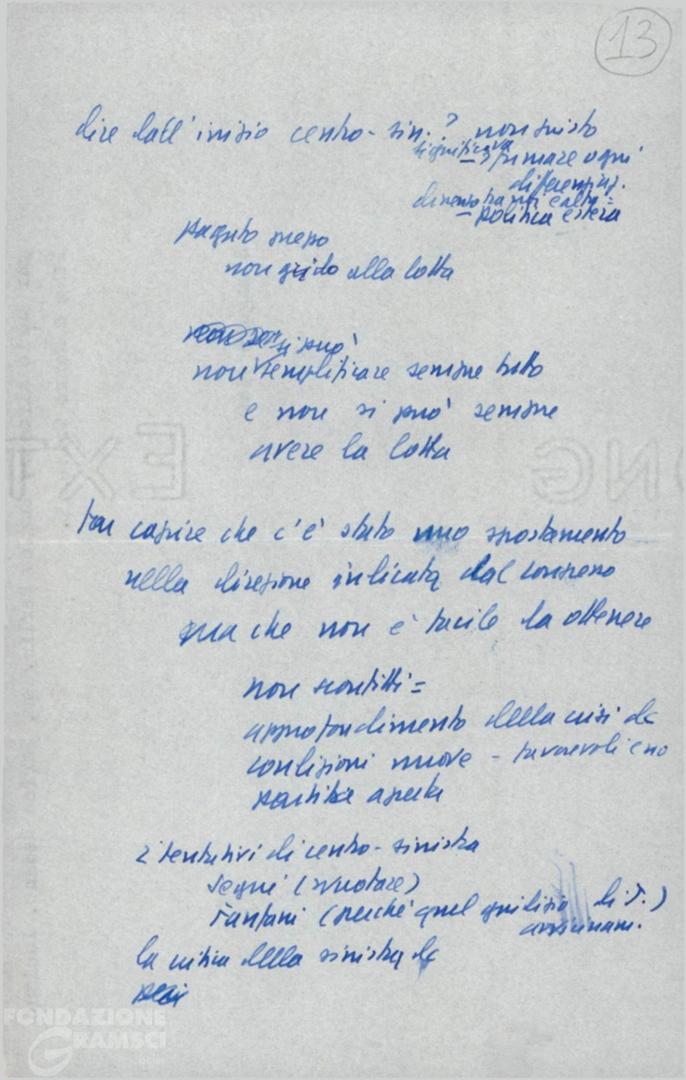 13
dire dall'inizio centro-sin.? non giusto
significava sfumare ogni
differenziaz.
politica estera
non guido alla lotta
si può
non semplificare sempre tutto
e non si può sempre
avere la lotta
far capire che c'è stato uno spostamento
nella direzione indicata dal congresso
ma che non è facile da ottenere
non sconfitti =
approfondimento della crisi dc
condizioni nuove - favorevoli e no
partita aperta
2 tentativi di centro-sinistra
Segni (svuotare)
Fanfani (perché quel giudizio di T.)
avvicinam.
la critica della sinistra dc
FONDAZIONE
GRAMSCI